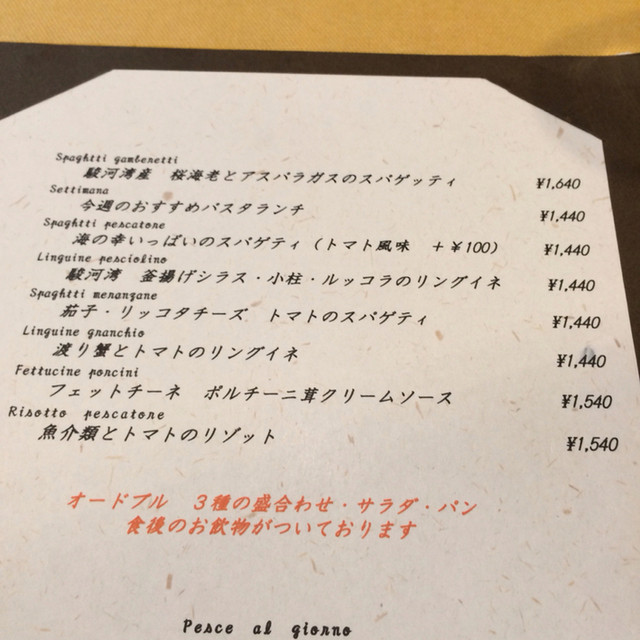 Spaghtti gambenetti
駿河湾産　桜海老とアスパラガスのスパゲッティ ¥1,640
Settimana
今週のおすすめパスタランチ ¥1,440
Spaghtti pescatone
海の幸いっぱいのスパゲティ（トマト風味　＋￥100） ¥1,440
Linguine pesciolino
駿河湾　釜揚げシラス・小柱・ルッコラのリングイネ ¥1,440
Spaghtti menanzane
茄子・リッコタチーズ　トマトのスパゲティ ¥1,440
Linguine gnanchio
渡り蟹とトマトのリングイネ ¥1,440
Fettucine poncini
フェットチーネ　ポルチーニ茸クリームソース ¥1,540
Risotto pescatone
魚介類とトマトのリゾット ¥1,540
オードブル　３種の盛合わせ・サラダ・パン
食後のお飲物がついております
Pesce al giorno